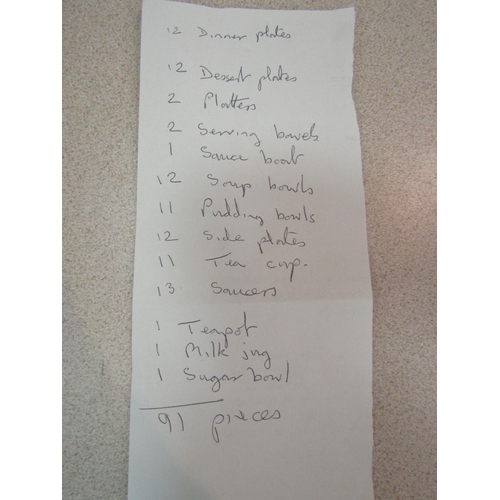 12 Dinner plates
12 Dessert plates
2 Platters
2 Serving bowls
1 Sauce boat
12 Soup bowls
11 Pudding bowls
12 Side plates
11 Tea cup.
13 Saucers
1 Teapot
1 Milk jug
1 Sugar bowl
91 pieces